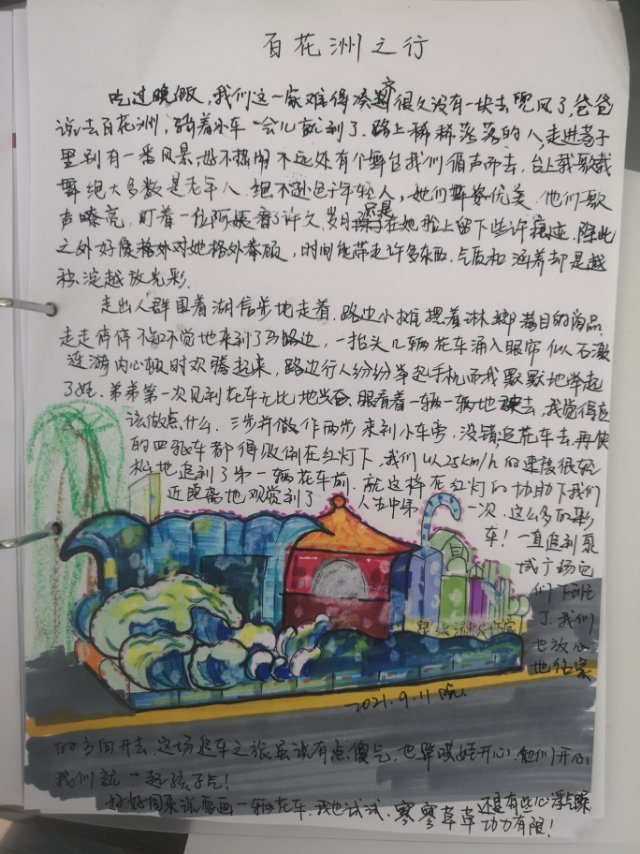 百花洲之行
吃过晚饭，我们这一家难得凑齐很久没有一块去兜风了，爸爸
说去百花洲，骑着小车一会儿就到了。路上稀稀落落的人，走进巷子
里别有一番风景好不热闹 不远处有个舞台我们循声而去，台上载歌载
舞 绝大多数是老年人 绝不逊色于年轻人，她们舞姿优美，他们歌
声嘹亮，盯着一位阿姨看了许久，岁月只是在她脸上留下些许痕迹，除此
之外好像格外对她格外眷顾，时间能带走许多东西，气质和涵养却是越
积淀越放光彩.
走出人群围着湖信步地走着，路边小摊摆着淋琅满目的商品
走走停停不知不觉地来到了马路边，一抬头几辆花车涌入眼帘 似石激
涟漪内心顿时欢腾起来，路边行人纷纷举起手机而我默默地举起
了娃、弟弟第一次见到花车无比地兴奋、眼看着一辆一辆地 去，我觉得应
该做点什么. 三步并做作两步来到小车旁，没错追花车去，再快
的四驱车都得败倒在红灯下，我们以25km/h的速度很轻
松地追到了第一辆花车前. 就这样在红灯的协助下我们
近距离地观赏到了 人 一次. 这么多的彩
车！一直追到泉
城广场它
们下班
了. 我们
也放心
地往家
2021.9.11晚
的方向开去 这场追车之旅虽说有点傻气，也毕竟娃开心，他们开心
我们就一起孩子气！
好好回来说要画一辆花车，我也试试，寥寥草草 还是有些心浮气躁
功力有限！